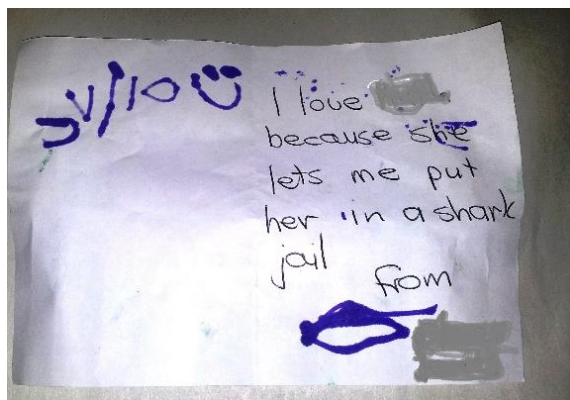 I love
because she
lets me put
her in a shark
jail
from